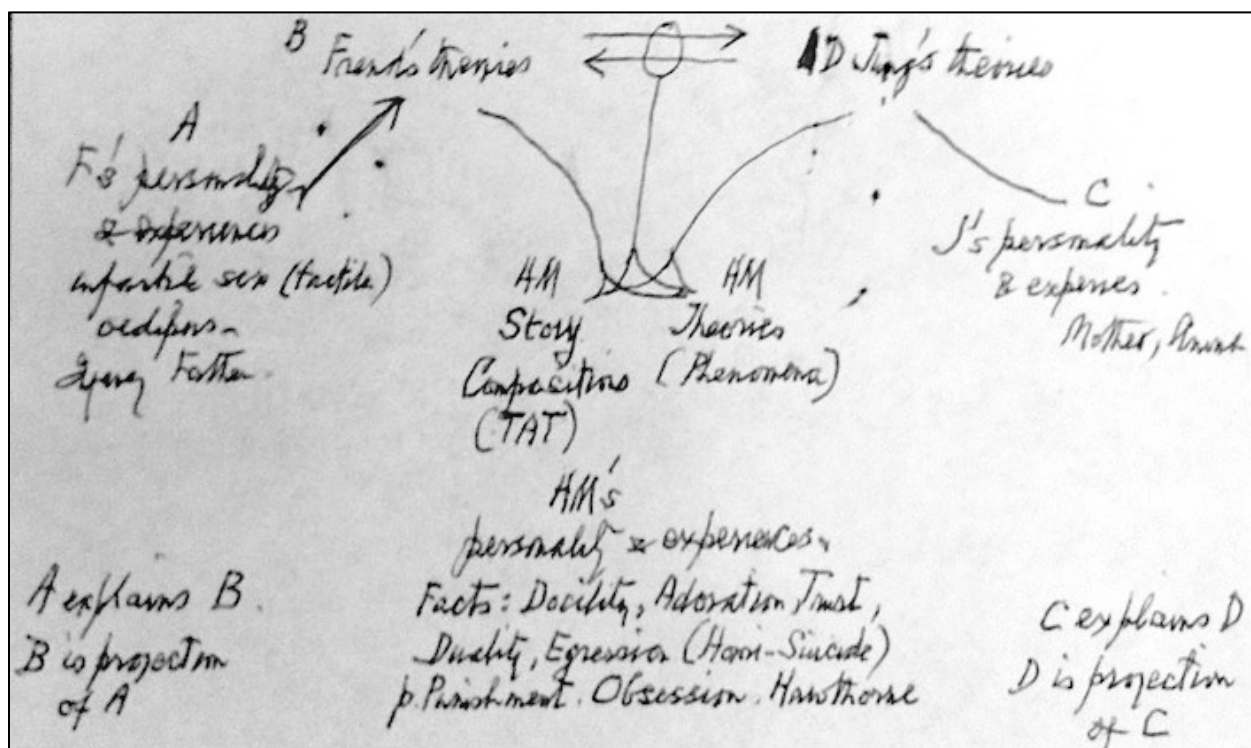 B
Freud's theories
D Jung's theories
A
F's personality
& experiences
infantile sex (tactile)
oedipus
Father.
C
J's personality
& experiences.
Mother,
HM
Story
Compositions
(TAT)
HM
Theories
(Phenomena)
HM's
personality & experiences.
Facts: Docility, Adoration, Trust,
Duality, Egression (Homi-Suicide)
p. Punishment. Obsession. Hawthorne
A explains B.
B is projection
of A
C explains D
D is projection
of C